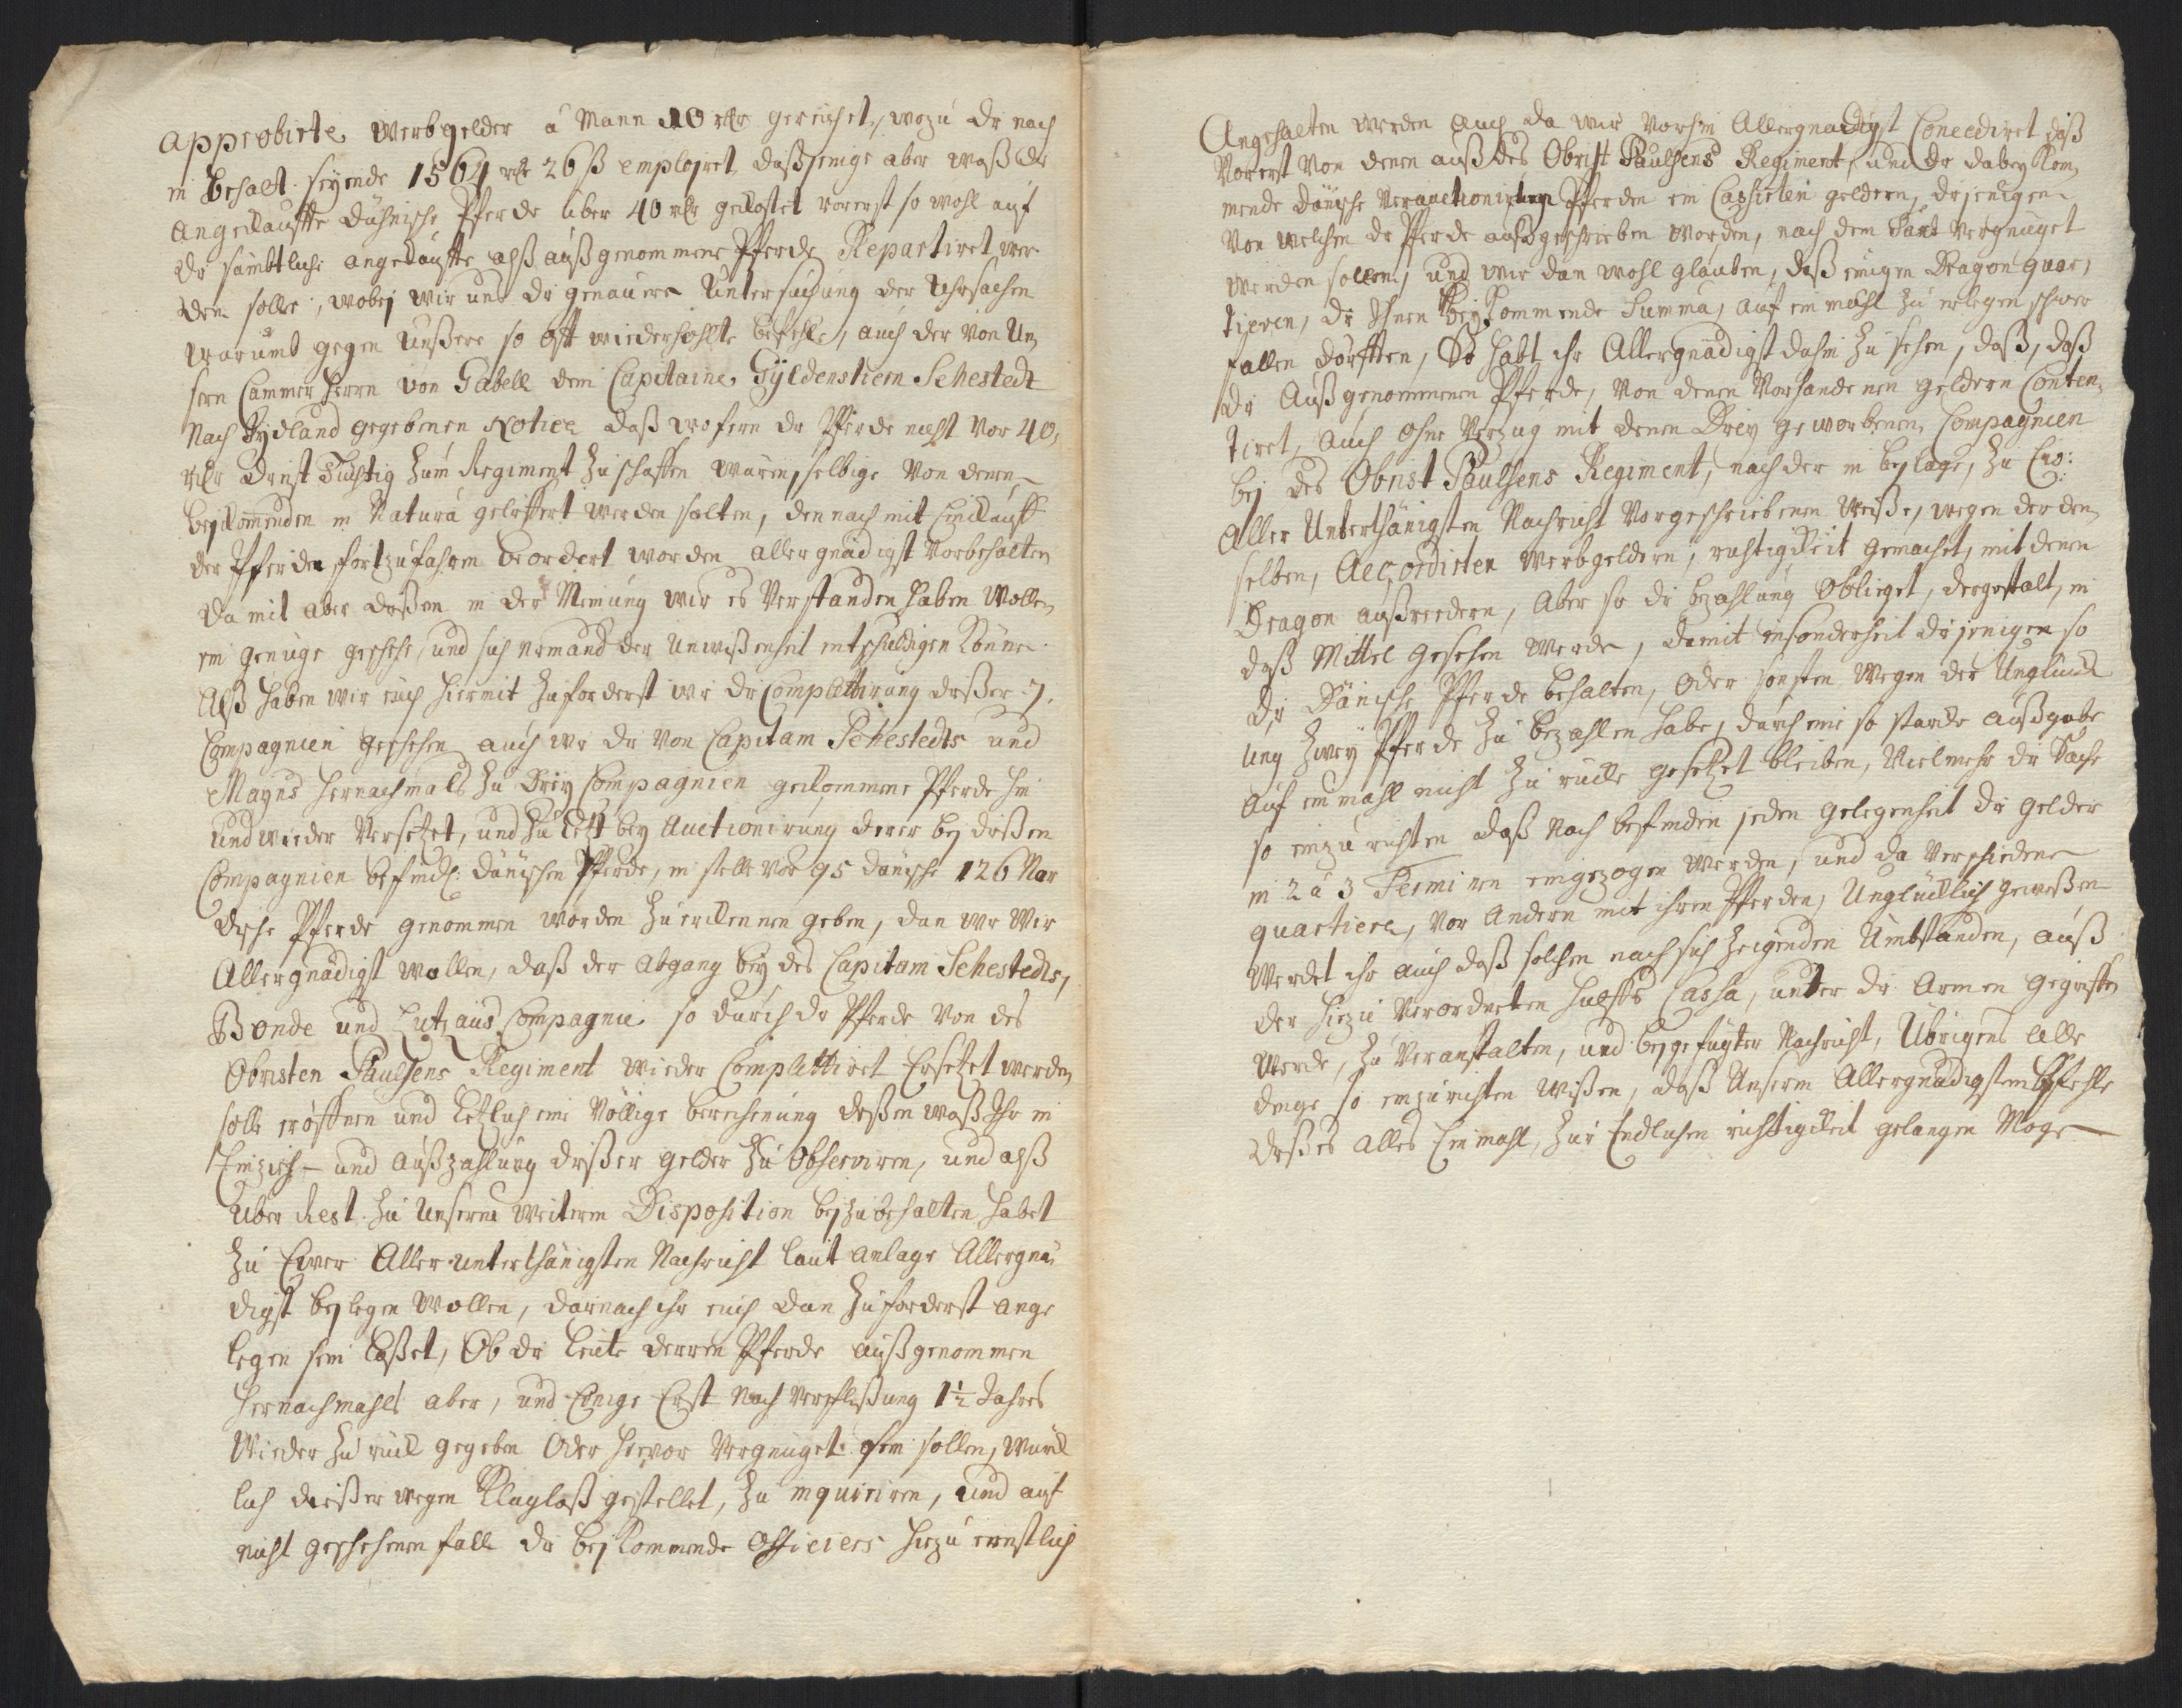 approbirte Werbgelder á Mann 10 rdr gereichet, wozu die nach
in behalt seyende 1564 rdr 26 ß emplojret, daßjenige aber waß die
angekauffte dähnische Pferde über 40 rdr gekostet vorerst so wohl auf
die sämbtliche angekauffte alß außgenommene Pferde Repartiret wer
den solle, wobej wir uns die genauere Untersuchung der Uhrsachen
warumb gegen unßere so offt wiederhohlte befehle, auch der von Un,
sern Cammer Herrn von Gabell dem Capitaine Gyldenstiern Sehestedt
nach Jydland gegebenen Notice daß wofern die Pferde nicht vor 40,
rdr dinst tüchtig zum Regiment zu schaffen wären, selbige von denen
bejkommenden in Natura geliffert werden solten, dennach mit Einkauff
der Pferden fortzufahren beordert worden allergnädigst vorbehalten
damit aber dießem in der Meinung wie wir es verstanden haben wollen
ein genüge geschehe, und sich niemand der unwißenheit entschuldigen könne
Alß haben wir euch hiermit zuforderst wie die Complettirung dießer 7.
Compagnien geschehen auch wie die von Capitain Sehestedts und
Mayns hernachmals zu Drey Compagnien gekommene Pferde hin
und wieder versetzet, und zu letzt bey Auctionirung derer bej dießen
Compagnien befindl: dänischen Pferde, in stelle vor 95 dänische 126 Nor
dische Pferde genommen worden zu erkennen geben, dan wie Wir
Allergnädigst wollen, daß der abgang bey des Capitain Sehestedts,
Bonde und Lützaus Compagnie so durch die Pferde von des
Obristen Paulsens Regiment wieder Complettiret Ersetzet werden
solle eröffnen und letzlich eine völlige berechenung deßen waß Ihr in
Einzieh- und außzahlung dießer gelder zu Observiren, und alß
über Rest zu unserm weiteren Disposition bejzubehalten habet
zu Ewer Allerunterthänigsten Nachricht laut anlage Allergnä
digst bejlegen wollen, darnach ihr euch dan zuforderst ange
legen sein laßet, Ob die leute derren Pferde außgenommen
hernachmahls aber, und Einige Erst nach verfließung 1½ Jahres
wieder zu rück gegeben oder hievor vergnüget sein sollen, würck
lich dießer wegen Klagloß gestellet, zu inquiriren, und auf
nicht geschehenen fall die bejkommende Officiers hiezu ernstlich
Angehalten werden auch da wir vorhin Allergnädigst Concediret daß
vorerst von denen auß des Obrist Paulsens Regiment, und die dabey kom,
mende dänische verauctionirten Pferden ein Cassirten geldern, diejenigen
von welchen die Pferde außgeschrieben worden, nach dem Taxt vergnüget
werden sollen, und wir dan wohl glauben, daß einigen Dragon quar,
tieren, die Ihnen bejkommende Summa, auf ein mahl zu erlegen schwer
fallen dörfften, So habt ihr Allergnädigst dahin zu sehen, daß, daß
die außgenommenen Pferde, von denen vorhandenen geldern Conten,
tiret, auch ohne Verzug mit denen Drey geworbenen Compagnien
bej des Obrist Paulsens Regiment, nach der in bejlage, zu Ew:
Aller Unterthänigsten Nachricht vorgeschriebenen weiße, wegen der den
selben, Accordirten werbgeldern, richtigkeit gemachet, mit denen
Dragon außreedern, aber so die bezahlung obliget, dergestalt, in
daß Mittel gesehen werde, damit insonderheit diejenigen so
die Dänische Pferde behalten, oder sonsten wegen der unglück
ung zwey Pferde zu bezahlen habe, durch eine so starcke außgabe
auf ein mahl nicht zu rücke gesetzet bleiben, vielmehr die Sache
so einzurichten daß nach befinden jeden gelegenheit die gelder
in 2 á 3 Terminen eingezogen werden, und da verschiedene
quartiere, vor andern mit ihren Pferden, unglücklich geweßen
werdet ihr auch daß solchen nach sich zeigenden Umbständen, auß
der hiezu verordneten hülffs Cassa, unter die Armen gegriffen
werde, zu veranstalten, und bejgefügter Nachricht, übrigens alle
dinge so einzurichten wißen, daß Unserm Allergnädigstem befehle
dießes alles Einmahl, zur Endlichen richtigkeit gelangen möge